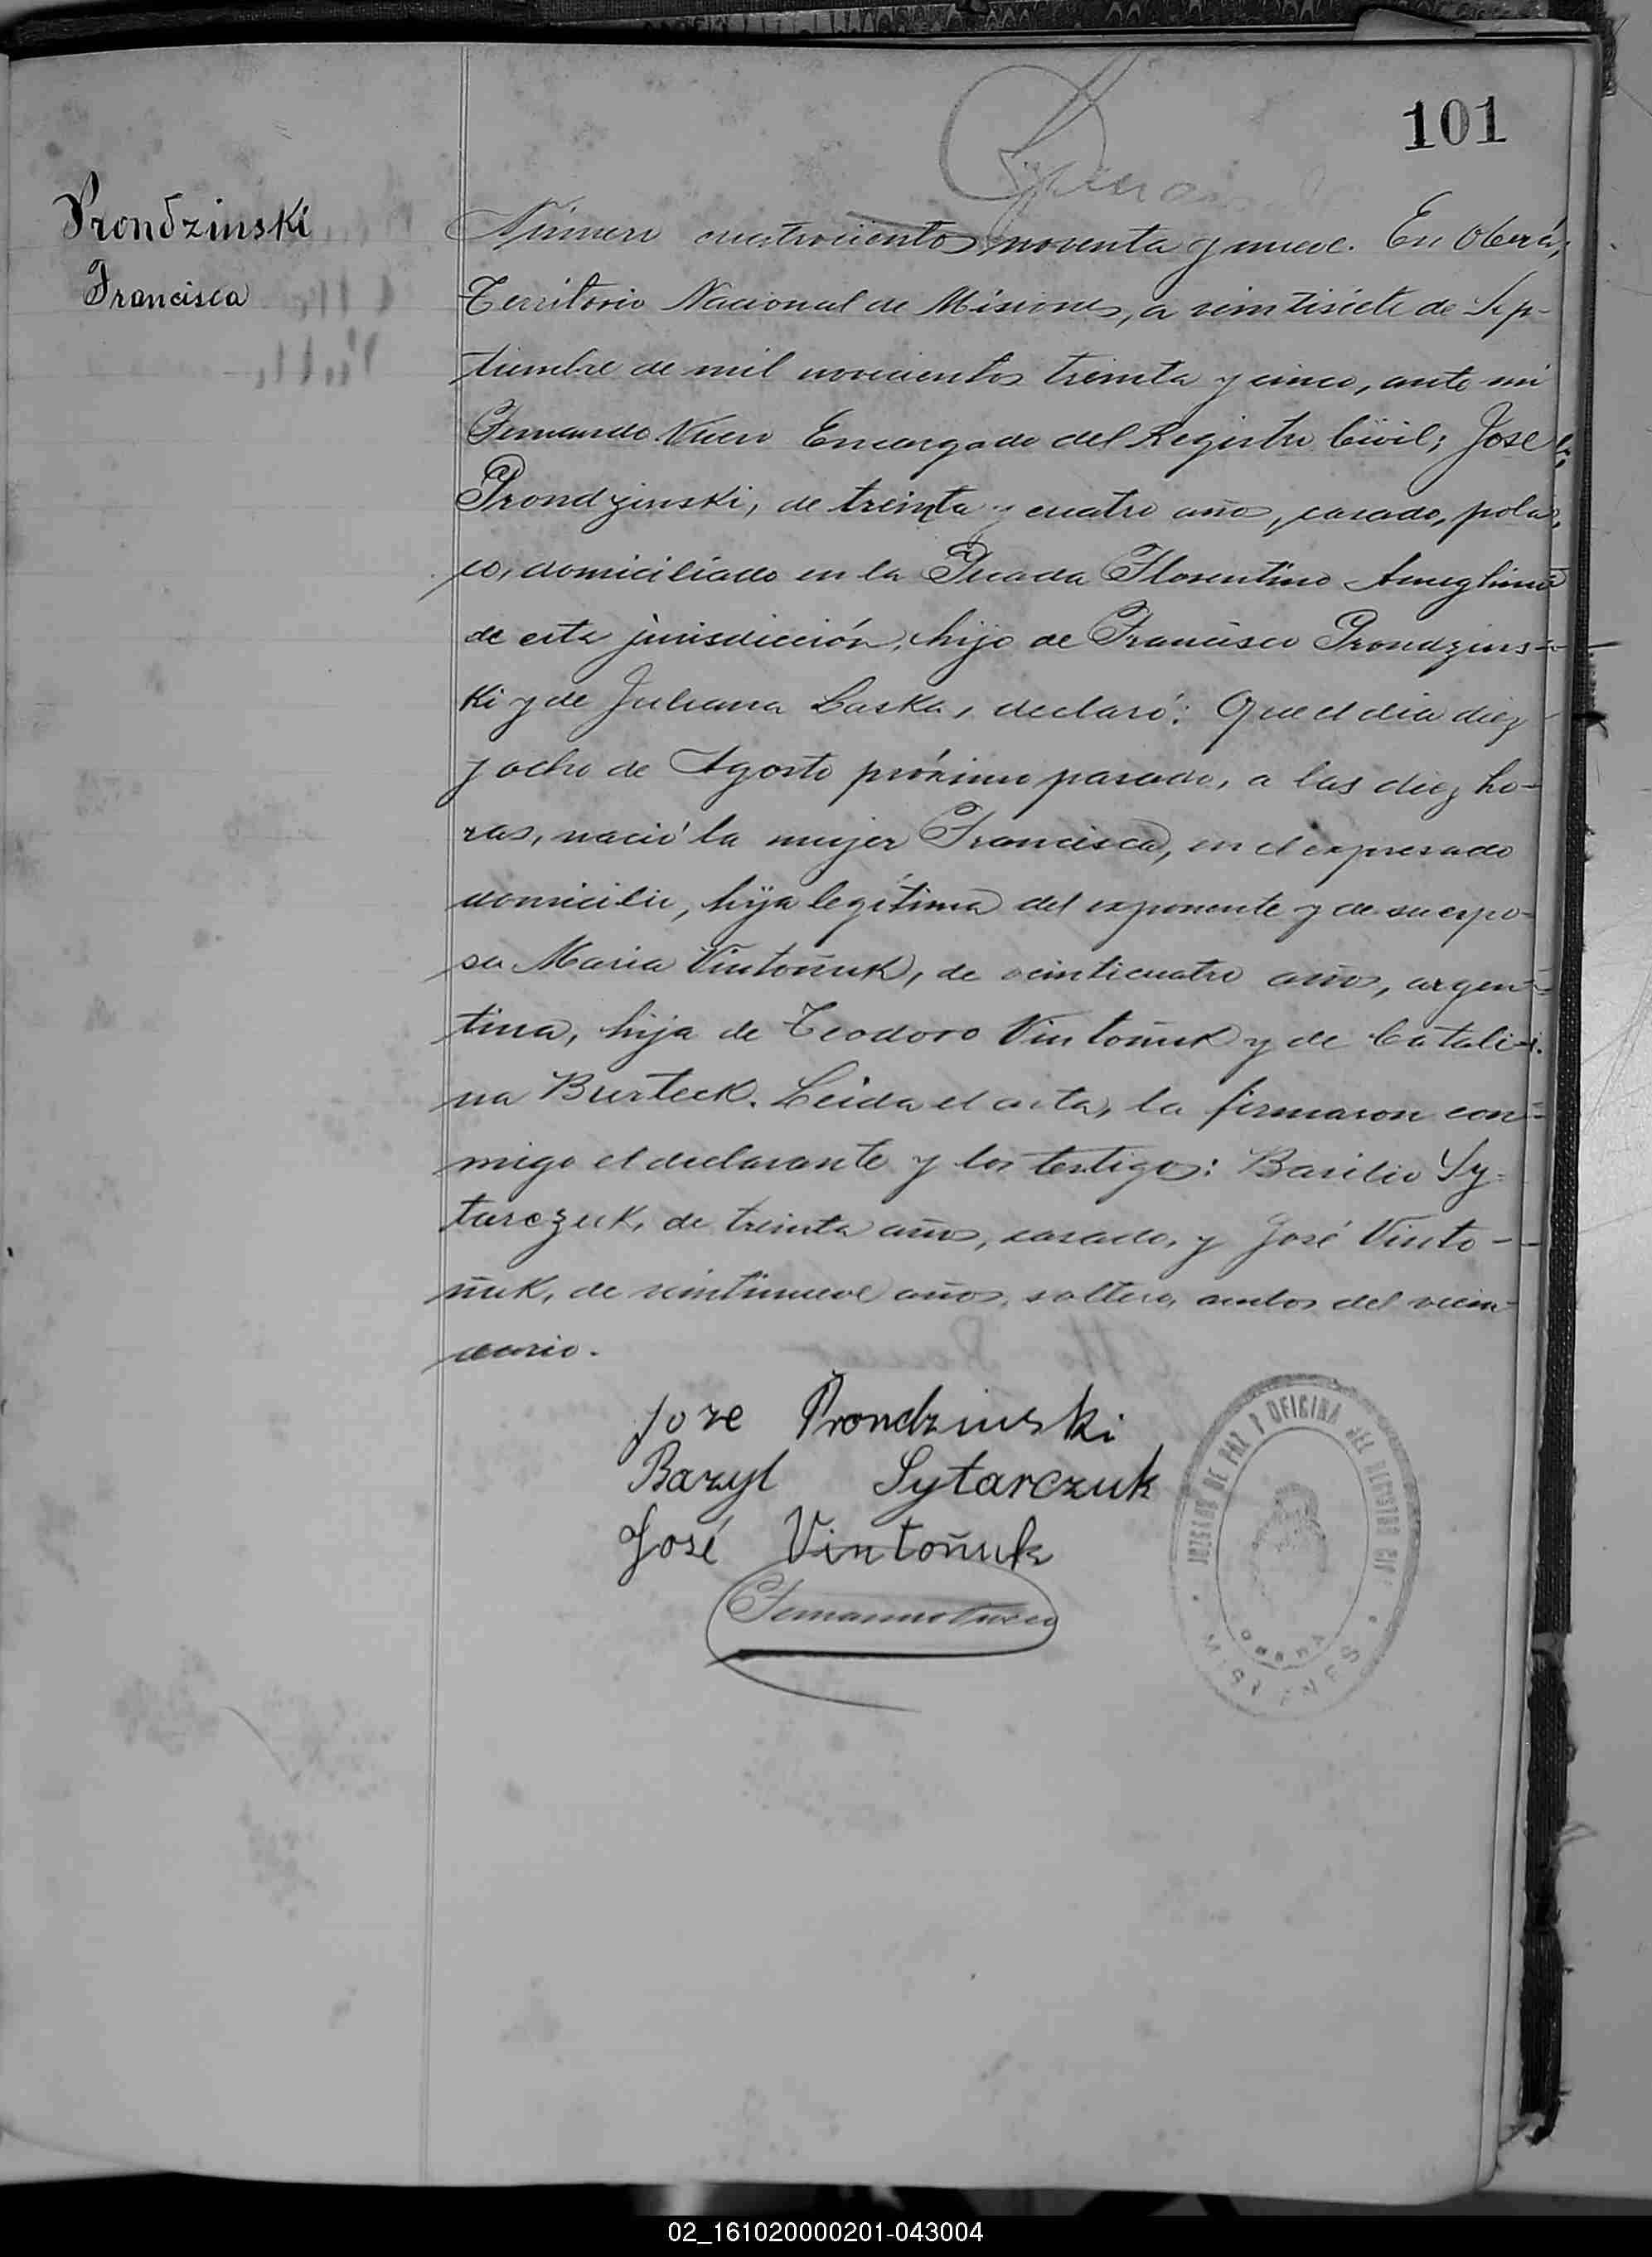 101
Prondzinski
Francisca
Número cuatrocientos noventa y nueve. En Oberá,
Territorio Nacional de Misiones, a veintisiete de Sep-
tiembre de mil novecientos treinta y cinco, ante mi
Fernando Encargado del Registro Civil; Jose
Prondzinski, de treinta y cuatro años, casado, pola-
co, domiciliado en la Picada Florentino Ameghino
de esta jurisdicción, hijo de Francisco Prondzins-
ki y de Juliana Laska, declaró: Que el dia diez
y ocho de Agosto próximo pasado, a las diez ho-
ras, nació la mujer Francisca, en el expresado
domicilio, hija legítima del exponente y de su espo-
sa Maria Vintoñuk, de veinticuatro años, argen-
tina, hija de Teodoro Vintoñuk y de Catali-
na Burteck. Leida el acta, la firmaron con-
migo el declarante y los testigos: Basilio Sy-
tarczuk, de treinta años, casado, y José Vinto-
ñuk, de veintinueve años, soltero, ambos del vecin-
dario.
Joze Prondzinski
Bazyl Sytarczuk
José Vintoñuk
JUZGADO DE PAZ Y OFICINA DEL REGISTRO CIVIL
OBERÁ
MISIONES
02_161020000201-043004